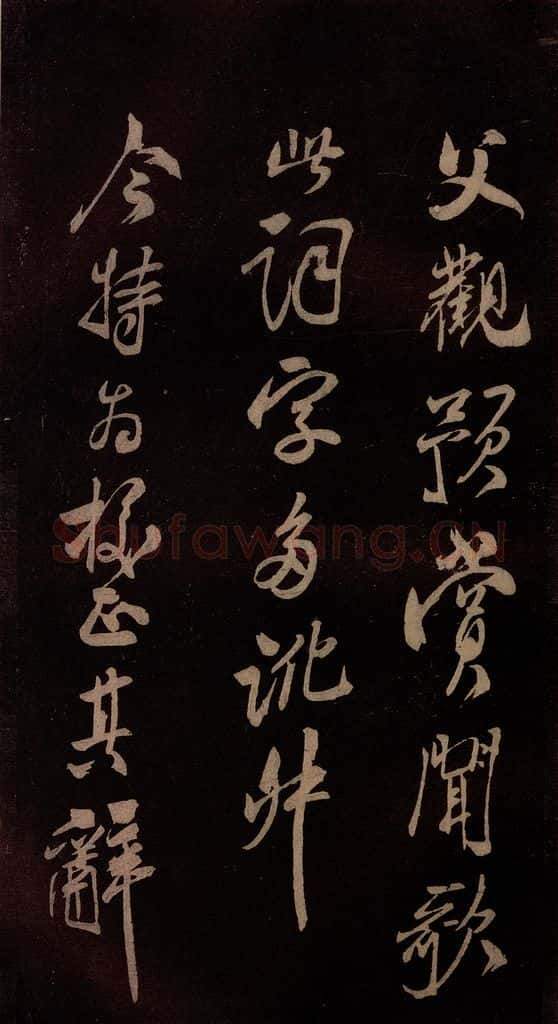 父觀預賞聞歌
此詞字多訛舛
今特為校正其辭
Shufawang.CN